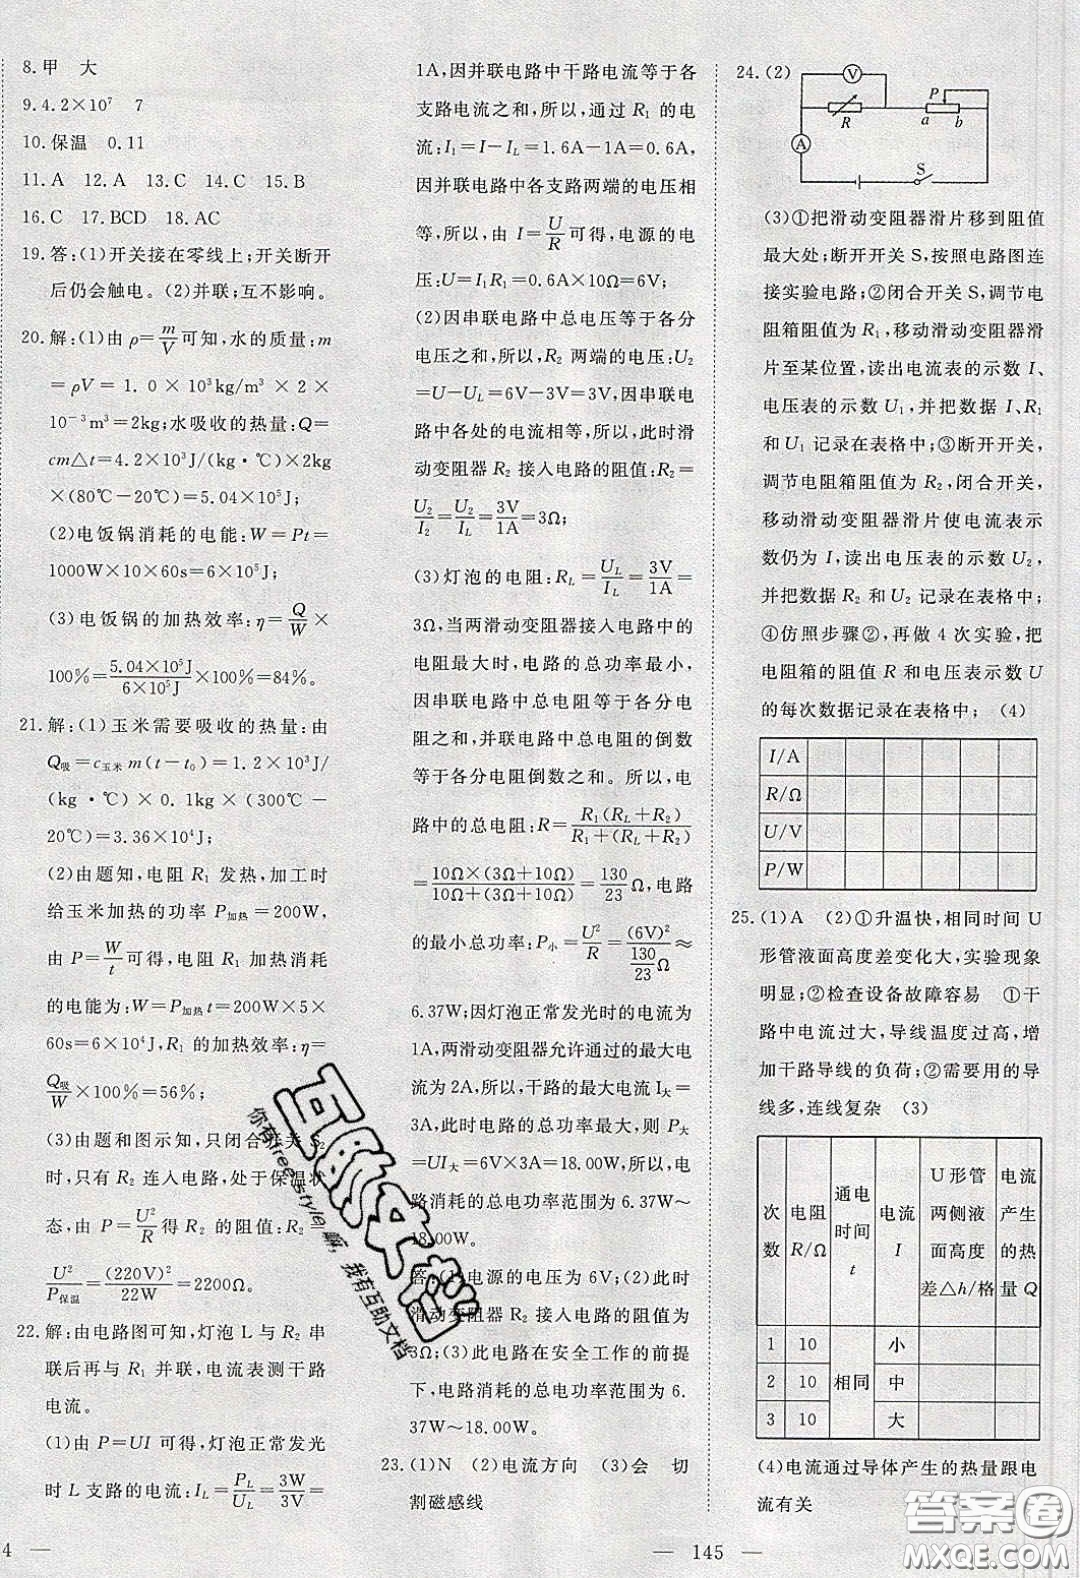 8.甲　大
9.4.2×10⁷　7
10.保温　0.11
11.A　12.A　13.C　14.C　15.B
16.C　17.BCD　18.AC
19.答:(1)开关接在零线上;开关断开
后仍会触电。(2)并联;互不影响。
20.解:(1)由 ρ=m/V可知,水的质量:m
=ρV=1.0×10³kg/m³×2×
10⁻³m³=2kg;水吸收的热量:Q=
cm△t=4.2×10³J/(kg·℃)×2kg
×(80℃-20℃)=5.04×10⁵J;
(2)电饭锅消耗的电能:W=Pt=
1000W×10×60s=6×10⁵J;
(3)电饭锅的加热效率:η=Q/W×
100%=5.04×10⁵J/6×10⁵J×100%=84%。
21.解:(1)玉米需要吸收的热量:由
Q吸=c玉米m(t-t₀)=1.2×10³J/
(kg·℃)×0.1kg×(300℃-
20℃)=3.36×10⁴J;
(2)由题知,电阻 R₁ 发热,加工时
给玉米加热的功率 P加热=200W,
由 P=W/t可得,电阻 R₁ 加热消耗
的电能为:W=P加热t=200W×5×
60s=6×10⁴J,R₁的加热效率:η=
Q吸/W×100%=56%;
(3)由题和图示知,只闭合开关 S₂
时,只有 R₂ 连入电路,处于保温状
态,由 P=U²/R得 R₂ 的阻值:R₂=
U²/P保温=(220V)²/22W=2200Ω。
22.解:由电路图可知,灯泡 L 与 R₂ 串
联后再与 R₁ 并联,电流表测干路
电流。
(1)由 P=UI 可得,灯泡正常发光
时 L 支路的电流:I_L=P_L/U_L=3W/3V=
4 —
1A,因并联电路中干路电流等于各
支路电流之和,所以,通过 R₁ 的电
流:I₁=I-I_L=1.6A-1A=0.6A,
因并联电路中各支路两端的电压相
等,所以,由 I=U/R可得,电源的电
压:U=I₁R₁=0.6A×10Ω=6V;
(2)因串联电路中总电压等于各分
电压之和,所以,R₂ 两端的电压:U₂
=U-U_L=6V-3V=3V,因串联电
路中各处的电流相等,所以,此时滑
动变阻器 R₂ 接入电路的阻值:R₂=
U₂/I₂=U₂/I_L=3V/1A=3Ω;
(3)灯泡的电阻:R_L=U_L/I_L=3V/1A=
3Ω,当两滑动变阻器接入电路中的
电阻最大时,电路的总功率最小,
因串联电路中总电阻等于各分电
阻之和,并联电路中总电阻的倒数
等于各分电阻倒数之和。所以,电
路中的总电阻:R=R₁(R_L+R₂)/R₁+(R_L+R₂)=
10Ω×(3Ω+10Ω)/10Ω+(3Ω+10Ω)=130/23Ω,电路
的最小总功率:P小=U²/R=(6V)²/(130/23)Ω≈
6.37W;因灯泡正常发光时的电流为
1A,两滑动变阻器允许通过的最大电
流为 2A,所以,干路的最大电流 I大=
3A,则电路消耗的最大功率,则 P大
=UI大=6V×3A=18.00W,所以,电
路消耗的总电功率范围为 6.37W~
18.00W。
答:(1)电源的电压为 6V;(2)此时
滑动变阻器 R₂ 接入电路的阻值为
3Ω;(3)此电路在安全工作的前提
下,电路消耗的总电功率范围为 6.
37W~18.00W。
23.(1)N　(2)电流方向　(3)会　切
割磁感线
— 145 —
24.(2)
V
P
R
a
b
A
S
(3)①把滑动变阻器滑片移到阻值
最大处;断开开关 S,按照电路图连
接实验电路;②闭合开关 S,调节电
阻箱阻值为 R₁,移动滑动变阻器滑
片至某位置,读出电流表的示数 I、
电压表的示数 U₁,并把数据 I、R₁
和 U₁ 记录在表格中;③断开开关,
调节电阻箱阻值为 R₂,闭合开关,
移动滑动变阻器滑片使电流表示
数仍为 I,读出电压表的示数 U₂,
并把数据 R₂ 和 U₂ 记录在表格中;
④仿照步骤②,再做 4 次实验,把
电阻箱的阻值 R 和电压表示数 U
的每次数据记录在表格中;　(4)
I/A
R/Ω
U/V
P/W
25.(1)A　(2)①升温快,相同时间 U
形管液面高度差变化大,实验现象
明显;②检查设备故障容易　①干
路中电流过大,导线温度过高,增
加干路导线的负荷;②需要用的导
线多,连线复杂　(3)
次数　电阻R/Ω　通电时间t　电流I　U形管两侧液面高度差△h/格　电流产生的热量Q
1　10　相同　小
2　10　中
3　10　大
(4)电流通过导体产生的热量跟电
流有关
互助文档
你有free style嘛，我有互助文档
答案圈
MXQE.COM